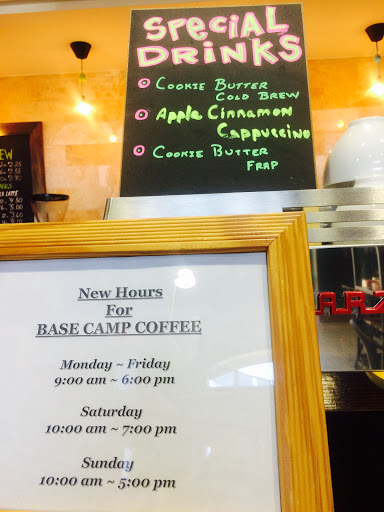 SPECIAL
DRINKS
COOKIE BUTTER
COLD BREW
Apple Cinnamon
Cappuccino
COOKIE BUTTER
FRAP
New Hours
For
BASE CAMP COFFEE
Monday ~ Friday
9:00 am ~ 6:00 pm
Saturday
10:00 am ~ 7:00 pm
Sunday
10:00 am ~ 5:00 pm